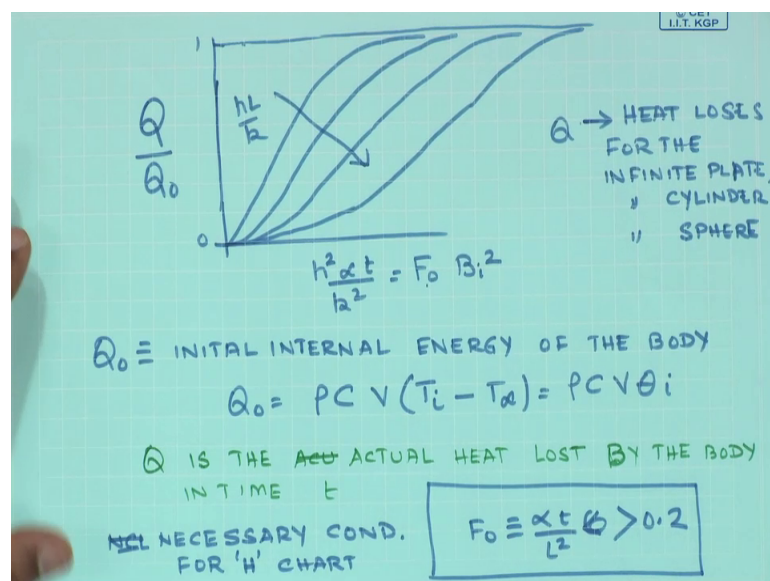 © CET
I.I.T. KGP
1
Q/Q₀
hL/k
0
h²αt/k² = F₀ Bi²
Q → HEAT LOSES
FOR THE
INFINITE PLATE,
" CYLINDER
" SPHERE
Q₀ ≡ INITAL INTERNAL ENERGY OF THE BODY
Q₀ = ρC V (Ti − Tα) = ρC V θi
Q IS THE ACU ACTUAL HEAT LOST BY THE BODY
IN TIME t
NECESSARY COND.
FOR 'H' CHART
F₀ ≡ αt/L² > 0.2